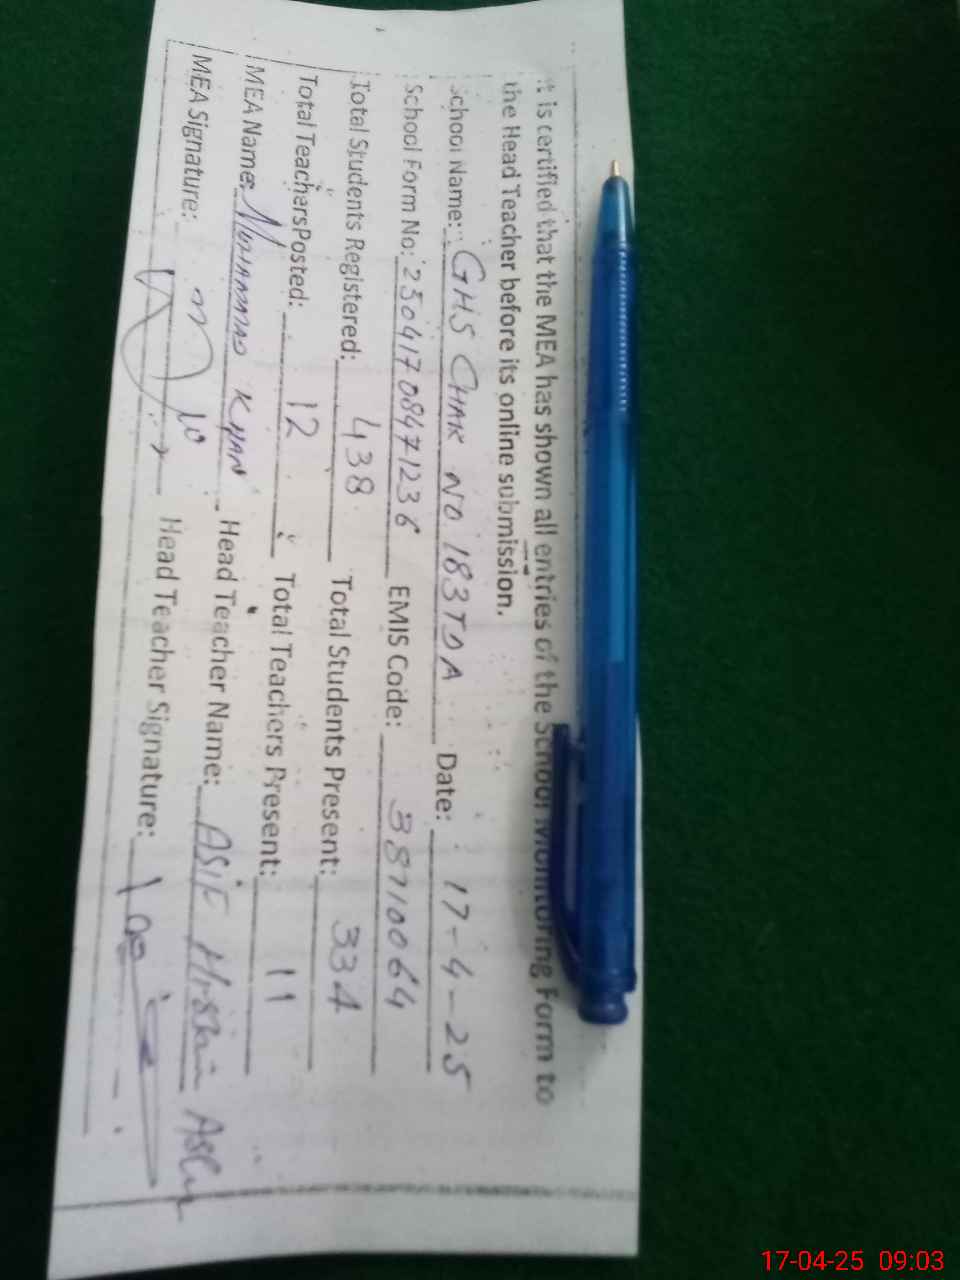 It is certified that the MEA has shown all entries of the School Monitoring Form to
the Head Teacher before its online submission.
School Name: GHS CHAK NO 183TDA Date: 17-4-25
School Form No: 25041708471236 EMIS Code: 38710064
Total Students Registered: 438 Total Students Present: 334
Total TeachersPosted: 12 Total Teachers Present: 11
MEA Name: MUHAMMAD KHAN Head Teacher Name: ASIF
MEA Signature: Head Teacher Signature:
17-04-25 09:03